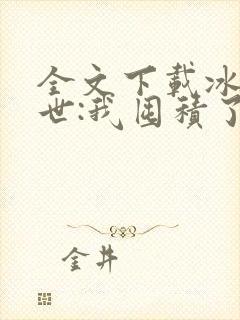 全文下載冰
世:我囤積了
金井